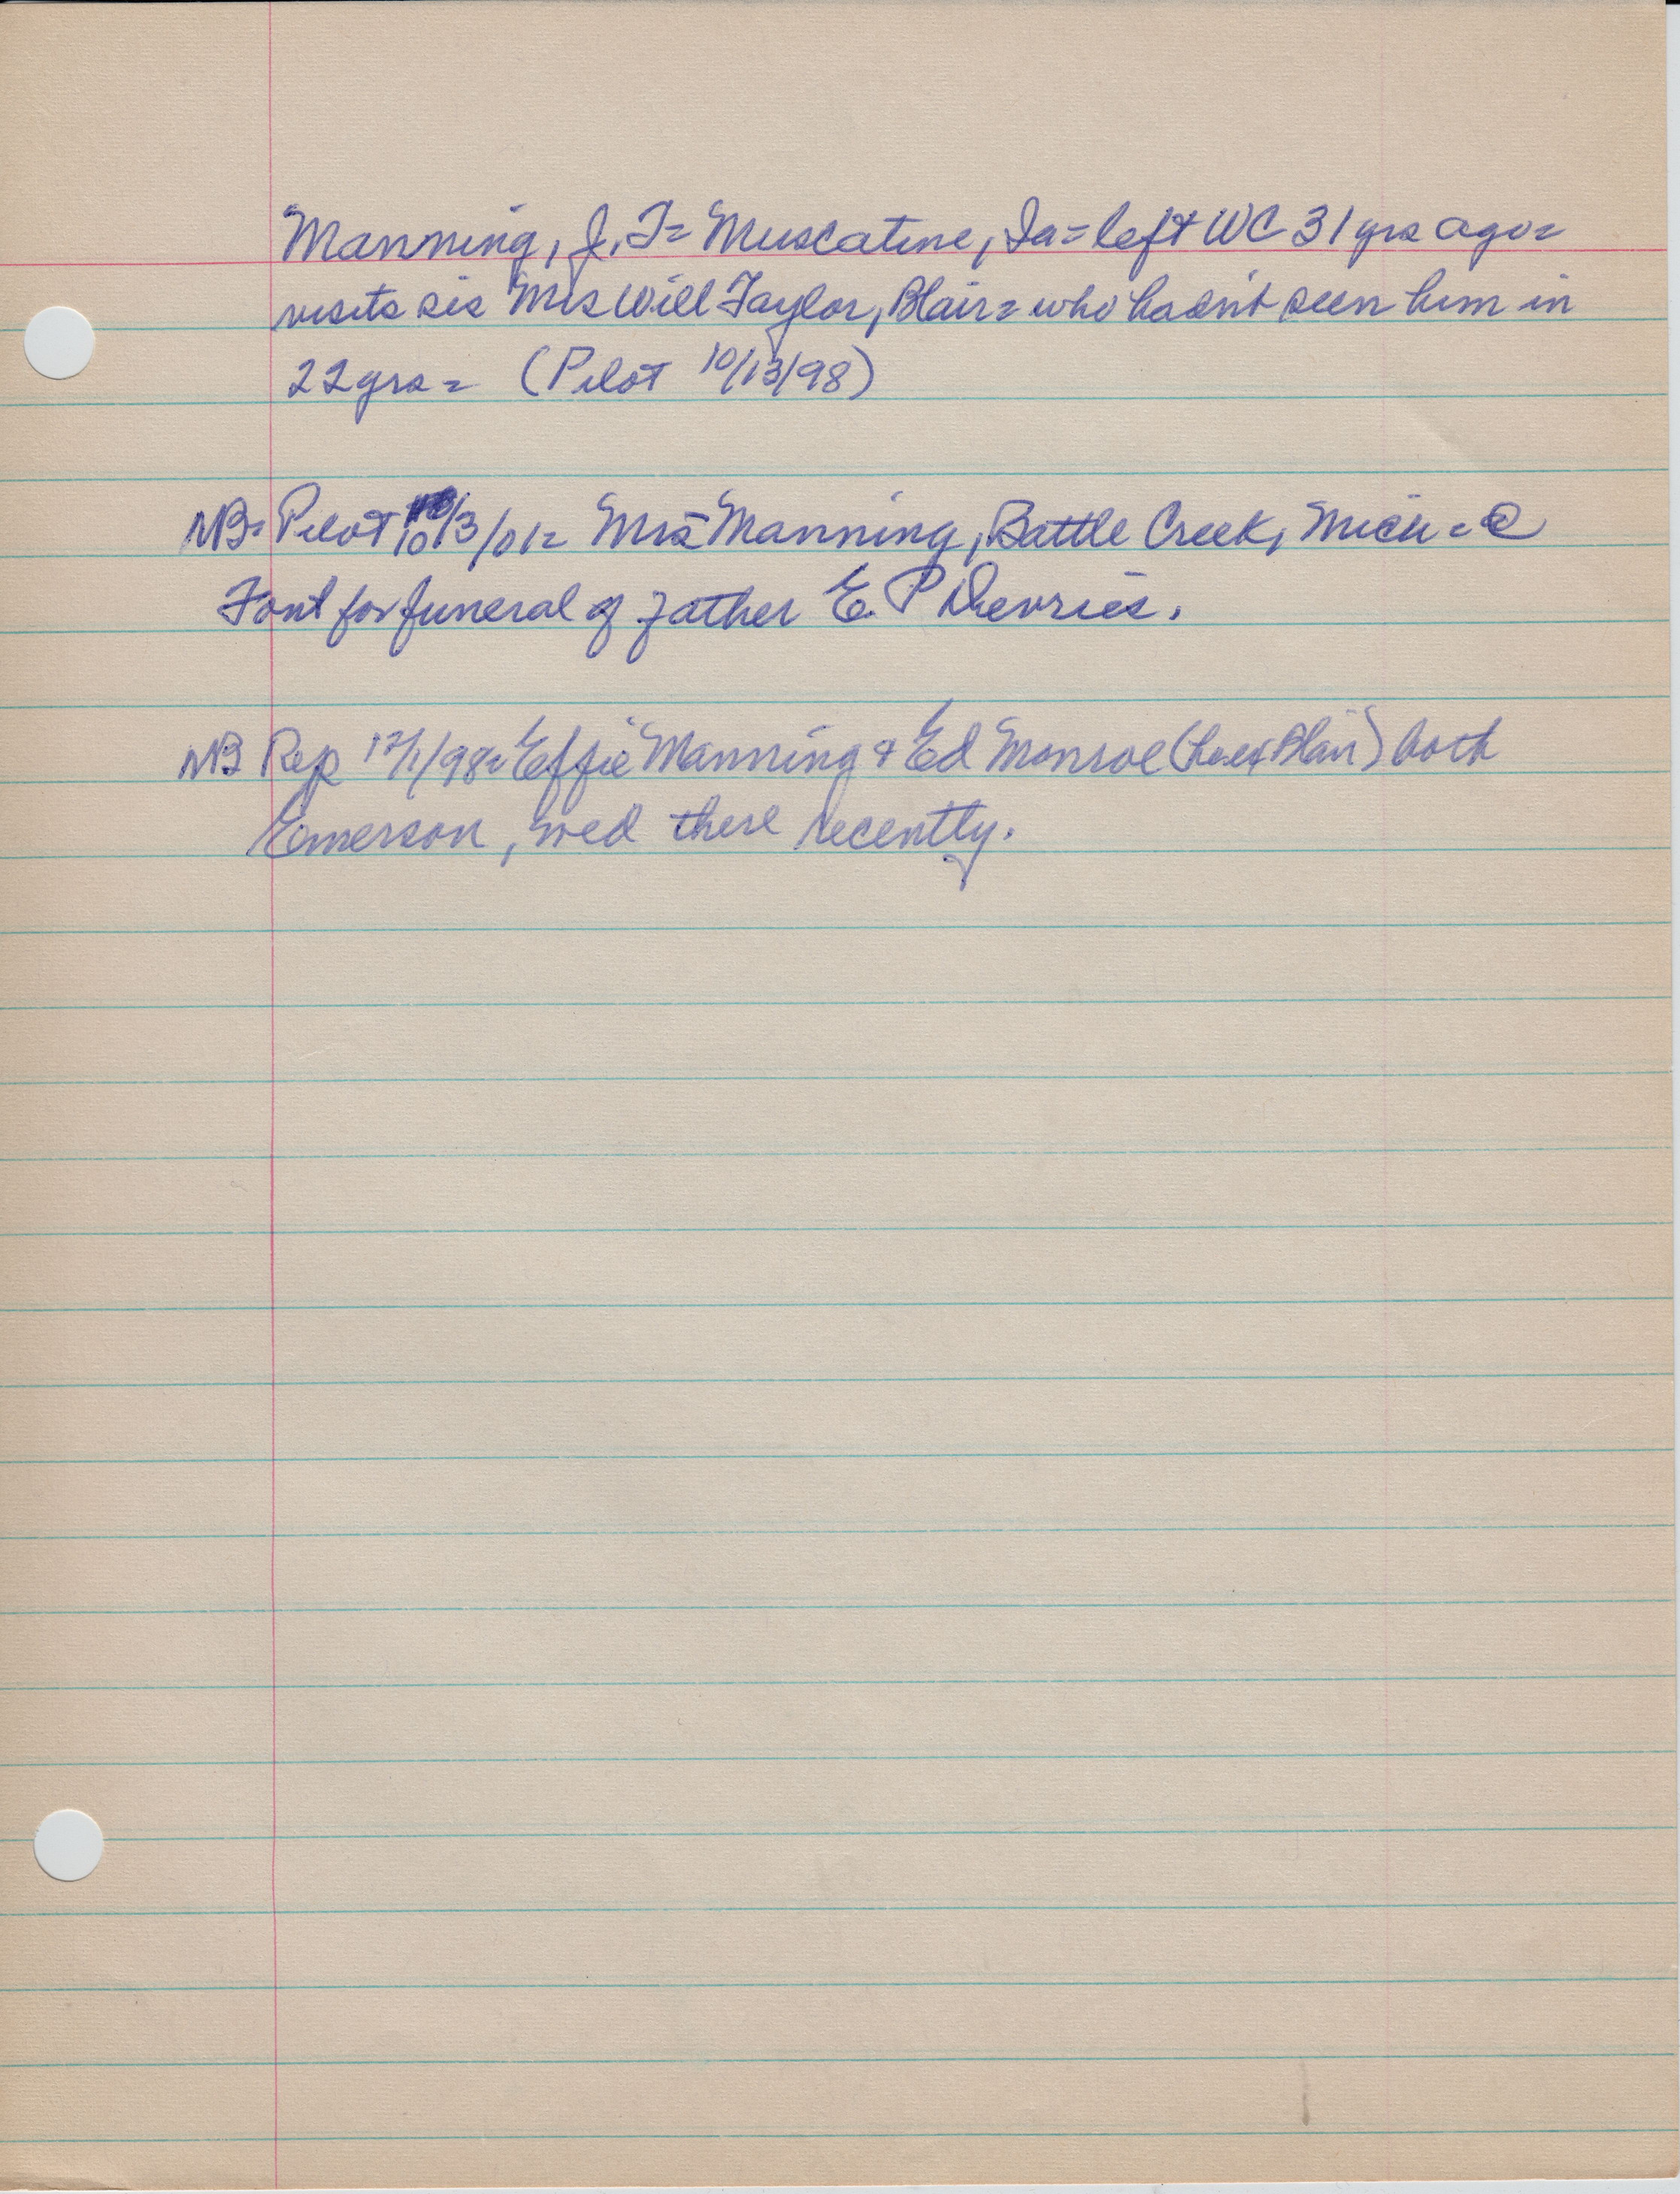 Manning, J. T= Muscatine, Ia= left WC 31 yrs ago=
visits sis Mrs Will Taylor, Blair= who hadn't seen him in
22 yrs = (Pilot 10/13/98)
NB= Pilot 10/3/01= Mrs Manning, Battle Creek, Mich = @
Font for funeral of father E. P Devries.
NB Rep 12/1/98= Effie Manning & Ed Monroe ( Blair) both
Emerson, wed there recently.